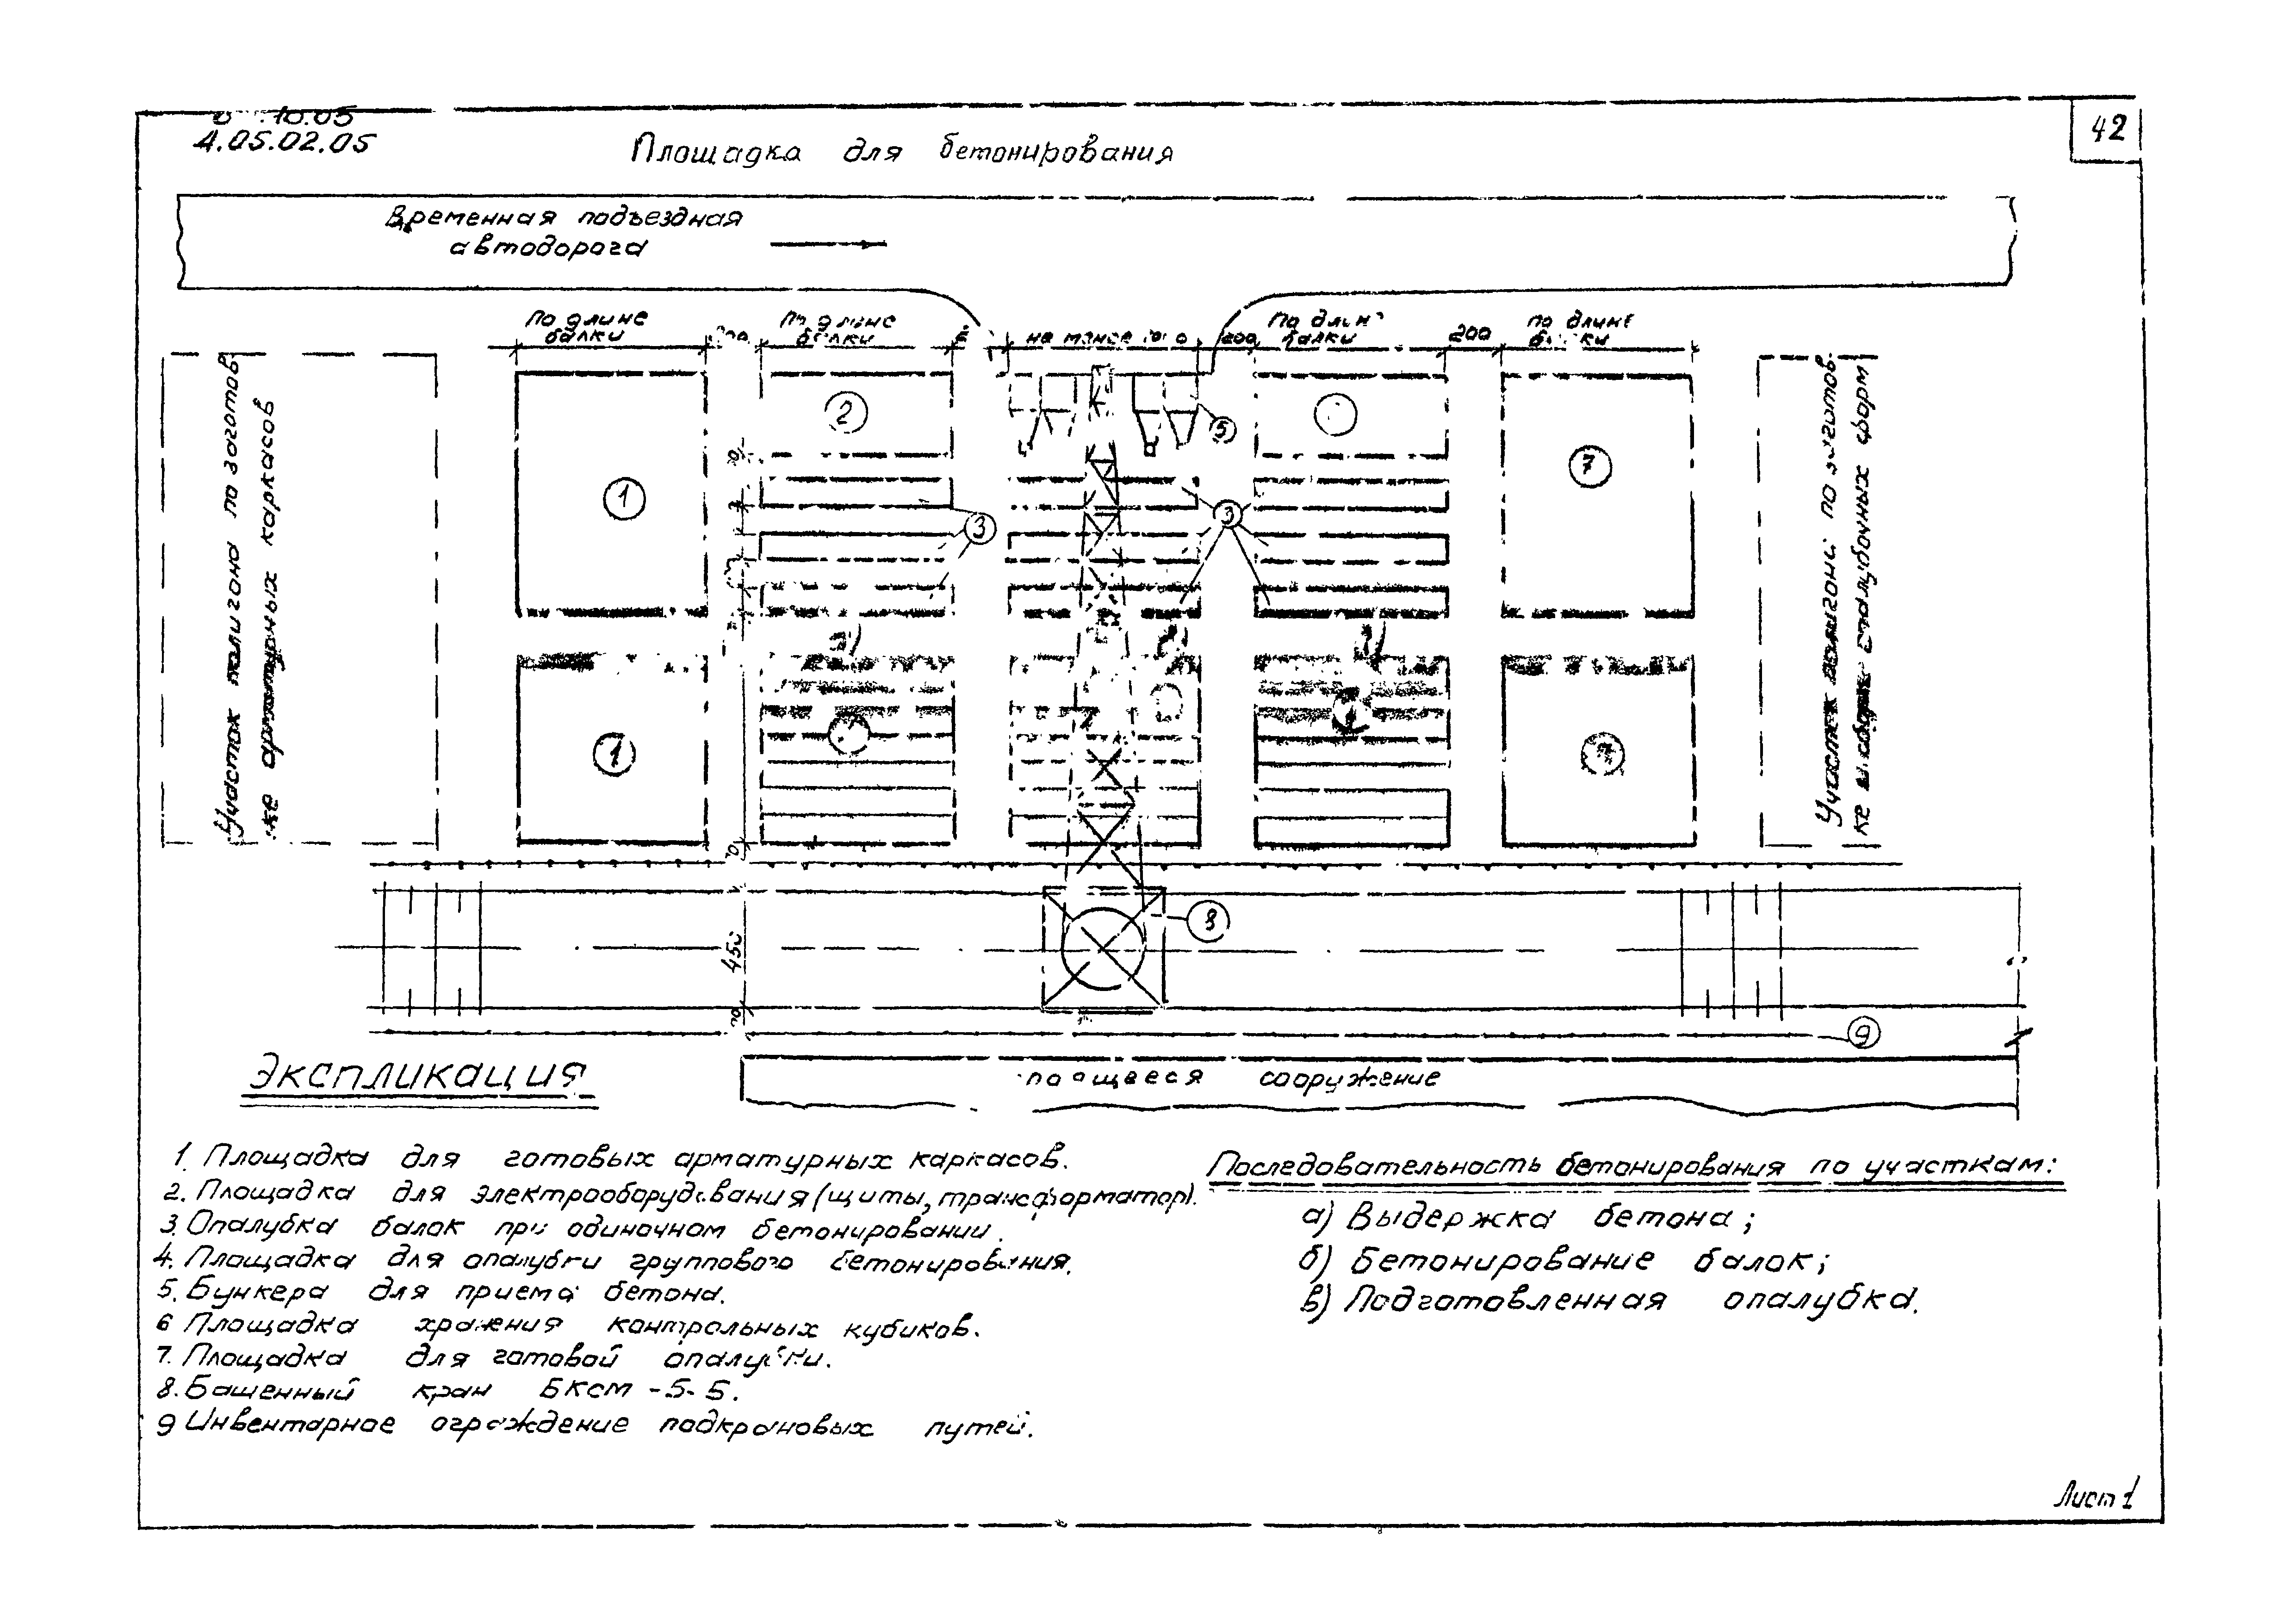 10.05
4.05.02.05
42
Площадка для бетонирования
Временная подъездная
автодорога
По длине
балки
балки
не менее
200
балки
200
по длине
Участок полигона по заготов
ке арматурных каркасов
1
2
5
7
3
3
1
7
8
450
9
Участок по
ке опалубочных форм
сооружение
Экспликация
1. Площадка для готовых арматурных каркасов.
2. Площадка для электрооборудования (щиты, трансформатор).
3. Опалубка балок при одиночном бетонировании.
4. Площадка для опалубки группового бетонирования.
5. Бункера для приема бетона.
6 Площадка хранения контрольных кубиков.
7. Площадка для готовой опалубки.
8. Башенный кран БКсм -5-5.
9 Инвентарное ограждение подкрановых путей.
Последовательность бетонирования по участкам:
а) Выдержка бетона;
б) Бетонирование балок;
в) Подготовленная опалубка.
Лист 1